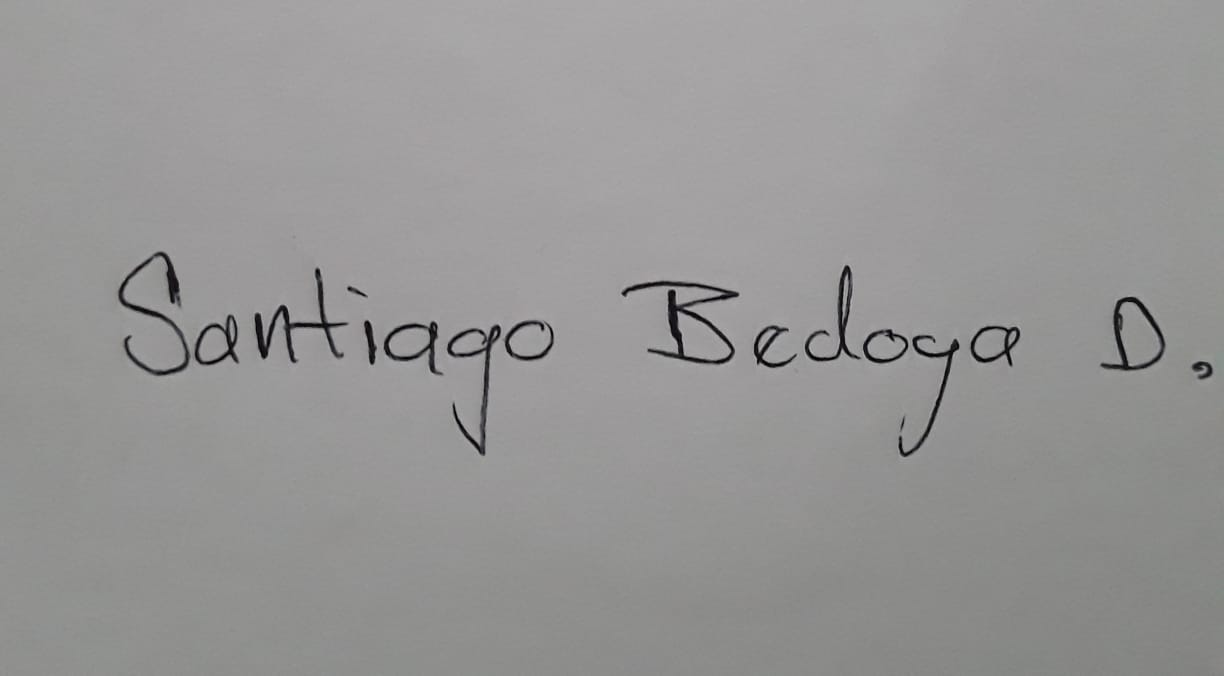 Santiago Bedoya D.